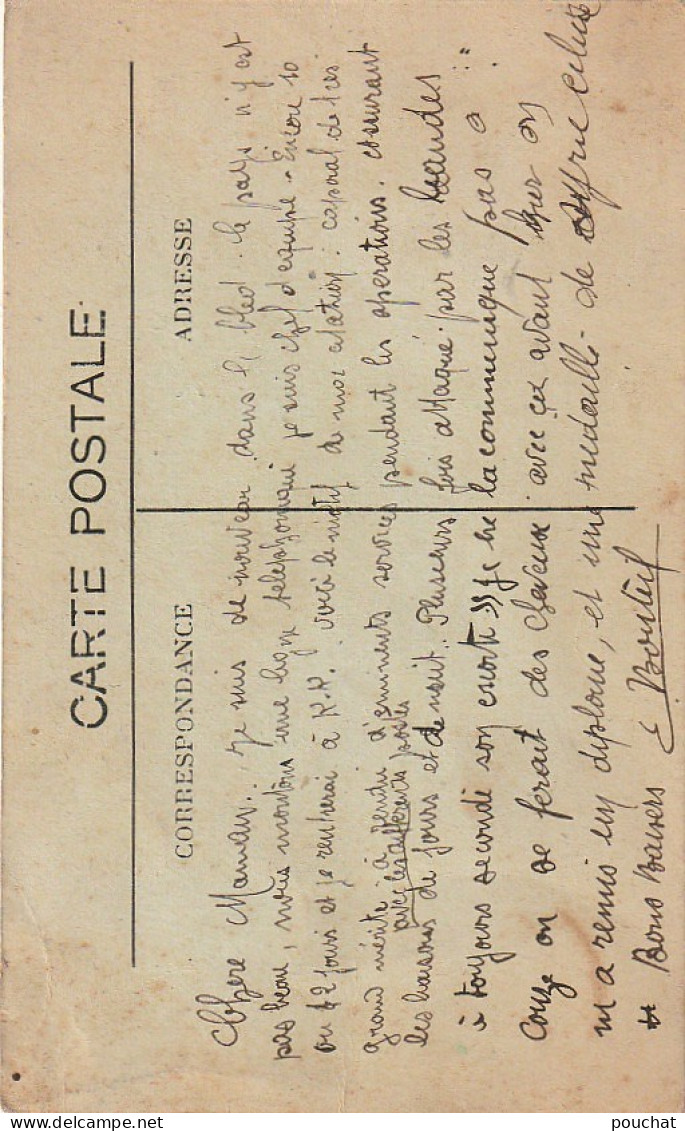 CARTE POSTALE
CORRESPONDANCE
ADRESSE
Chère Maman. Je suis de nouveau dans le bled. le pays n'y est
pas beau, nous montons une ligne telephonique je suis chef d'equipe. Encore 10
ou 12 jours et je rentrerai à R.R. voici le motif de moi citation: caporal de tres
grand mérite à rendu d'eminents services pendant les operations. assurant
avec les differents postes
les liaisons de jours et de nuit. Plusieurs fois attaqué par les bandes
à toujours secondé son escorte" Je ne la communique pas à
Couze on se ferait des cheveux. avec ça avant hier on
m'a remis un diplome, et une medaille de Syrie
Bons Baisers
pouchat